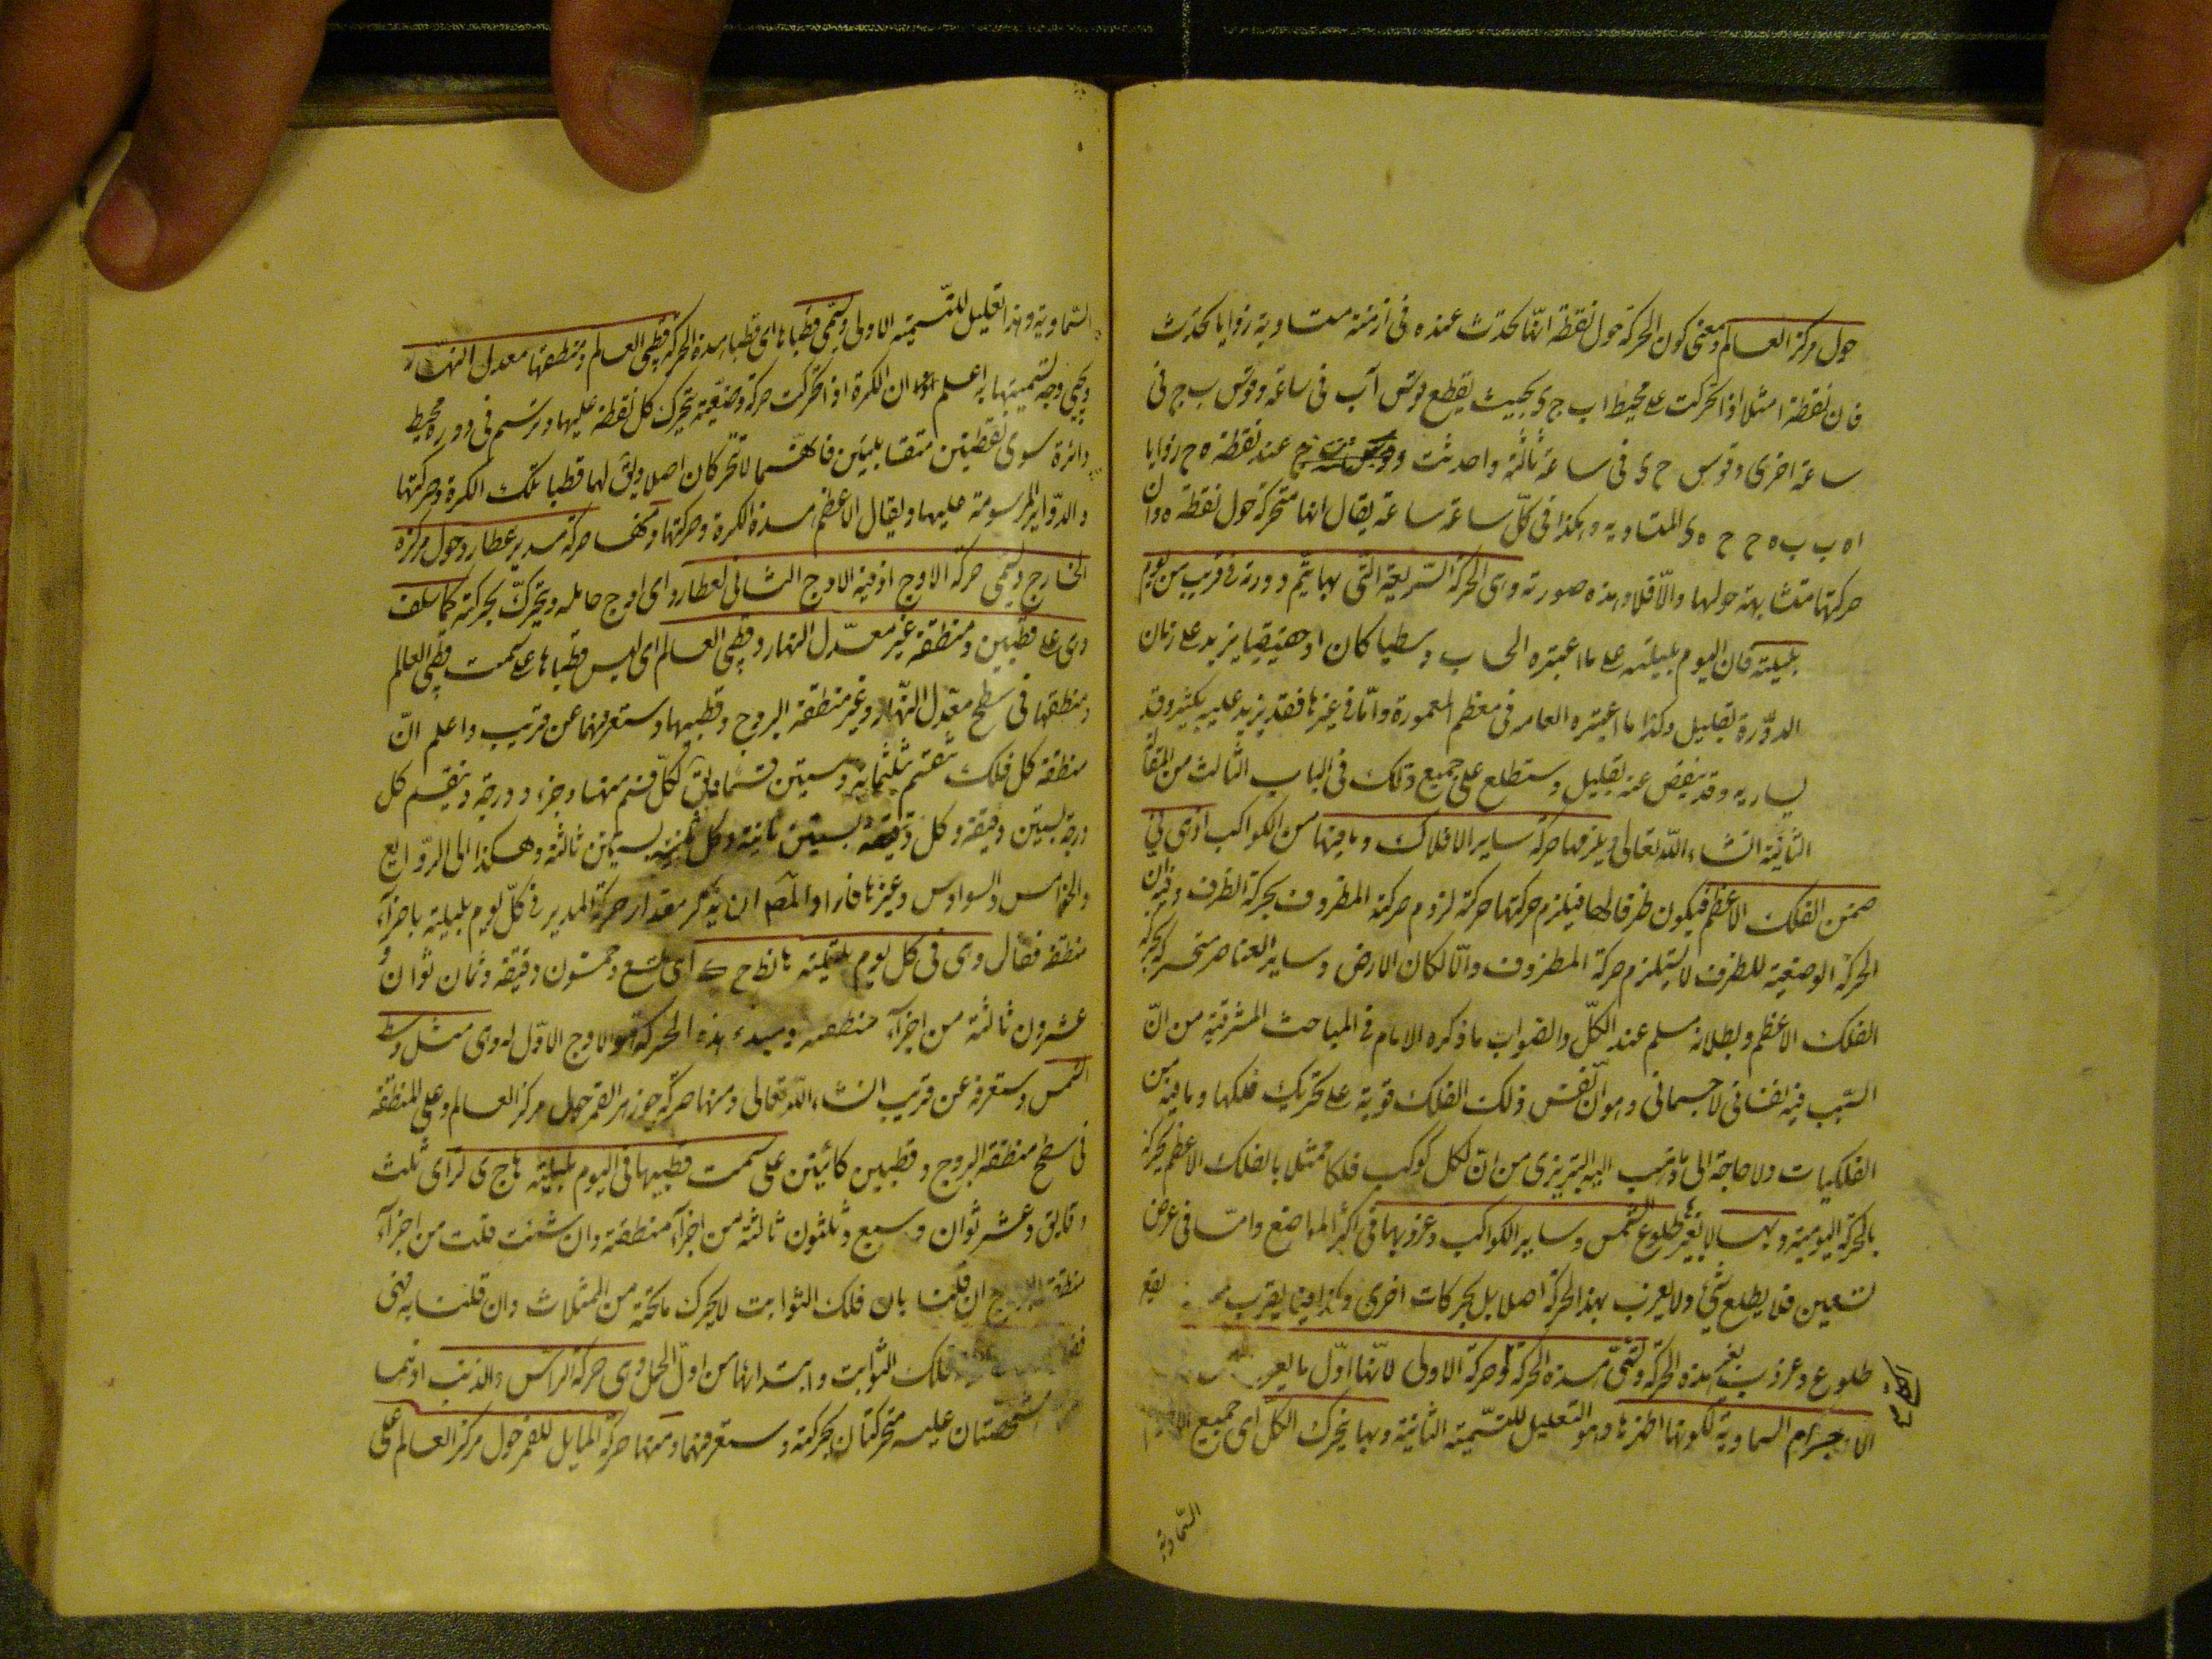 حول مركز العالم ومعنى كون الحركة حول نقطة انها تحدث عنده فى ازمنة متساوية زوايا تحدث
فان نقطة ا مثلا اذا تحركت على محيط اب ج د بحيث يقطع قوس اب فى ساعة وقوس ب ج فى
ساعة اخرى وقوس ج د فى ساعة ثالثة واحدثت عند نقطة ه زوايا
ا ه ب ب ه ج ج ه د المتساوية وهكذا فى كل ساعة ساعة يقال انها متحركة حول نقطة ه وان
حركتها متشابهة حولها والا فلا وهذه صورته وهى الحركة السريعة التى بها يتم دورة فى قريب من يوم
بليلته فان اليوم بليلته على ما اعتبره الحساب وسطيا كان او حقيقيا يزيد على زمان
الدورة بقليل وكذا ما اعتبره العامه فى معظم المعمورة واما فى غيرها فقد يزيد عليه بكثير وقد
يساويه وقد ينقص عنه بقليل وستطلع على جميع ذلك فى الباب الثالث من المقالة
الثانية انشاء الله تعالى ويلزمها حركة ساير الافلاك وما فيها من الكواكب اذ هى فى
ضمن الفلك الاعظم فيكون ظرفا لها فيلزم حركتها حركته لزوم حركة المظروف بحركة الظرف وفيه ان
الحركة الوضعية للظرف لا يستلزم حركة المظروف والا لكان الارض وساير العناصر متحركة بحركة
الفلك الاعظم وبطلانه مسلم عند الكل والصواب ما ذكره الامام فى المباحث المشرقية من ان
السبب فيه نفسانى لا جسمانى وهو ان نفس ذلك الفلك قوية على تحريك فلكها وما فيه من
الفلكيات ولا حاجة الى ما ذهب اليه التبريزى من ان لكل كوكب فلكا ممثلا بالفلك الاعظم يحركه
بالحركة اليومية وبها يقع طلوع الشمس وساير الكواكب وغروبها فى اكثر المواضع واما فى عرض
تسعين فلا يطلع شئ ولا يغرب بهذه الحركة اصلا بل بحركات اخرى وكذا فيما يقرب منه يقع
طلوع وغروب بغير هذه الحركة وتسمى هذه الحركة الحركة الاولى لانها اول ما يعرف من
الاجرام السماوية لكونها اظهرها وهو التعليل للتسمية الثانية وبها يتحرك الكل اى جميع الاجرام
السماوية
السماوية وهذا تعليل للتسمية الاولى ويسمى قطباها اى قطبا هذه الحركة قطبى العالم ومنطقتها معدل النهار
ويجئ وجه تسميتها به اعلم ان الكرة اذا تحركت حركة وضعية يتحرك كل نقطة عليها وترسم فى دورة محيط
دائرة سوى نقطتين متقابلتين فانهما لا تتحركان اصلا ويق لهما قطبا تلك الكرة وحركتها
والدواير المرسومة عليها ويقال لاعظمها منطقة الكرة وحركتها ومنها حركة مدير عطارد حول مركزه
الخارج وتسمى حركة الاوج اذ فيه الاوج الثانى لعطارد اى اوج حامله ويتحرك بحركته كما سلف
وهى على قطبين ومنطقة غير معدل النهار وقطبى العالم اى ليس قطباها على سمت قطبى العالم
ومنطقتها فى سطح معدل النهار وغير منطقة البروج وقطبيها وستعرفهما عن قريب واعلم ان
منطقة كل فلك تقسم ثلثمائة وستين قسما ويق لكل قسم منها جزء ودرجة وتنقسم كل
درجة بستين دقيقة وكل دقيقة بستين ثانية وكل ثانية بستين ثالثة وهكذا الى الروابع
والخوامس والسوادس وغيرها فاراد المص ان يذكر مقدار حركة المدير فى كل يوم بليلته باجزاء
منطقته فقال وهى فى كل يوم بليلته ها نط ح ك اى تسع وخمسون دقيقة وثمان ثوان و
عشرون ثالثة من اجزاء منطقته ومبدء هذه الحركة هو الاوج الاول له وهى مثل وسط
الشمس وستعرفه عن قريب انشاء الله تعالى ومنها حركة جوزهر القمر حول مركز العالم وعلى المنطقة
فى سطح منطقة البروج وقطبين كائنين على سمت قطبيها فى اليوم بليلته ها ج ى لز اى ثلث
دقايق وعشر ثوان وسبع وثلثون ثالثة من اجزاء منطقته وان شئت قلت من اجزاء
منطقة البروج ان قلنا بان فلك الثوابت لا يحرك ما تحته من الممثلات وان قلنا به فهى
فلك الثوابت وابتدائها من اول الحمل وهى حركة الراس والذنب اذ هما
متشخصتان عليه متحركتان بحركته وستعرفهما ومنها حركة المايل للقمر حول مركز العالم على